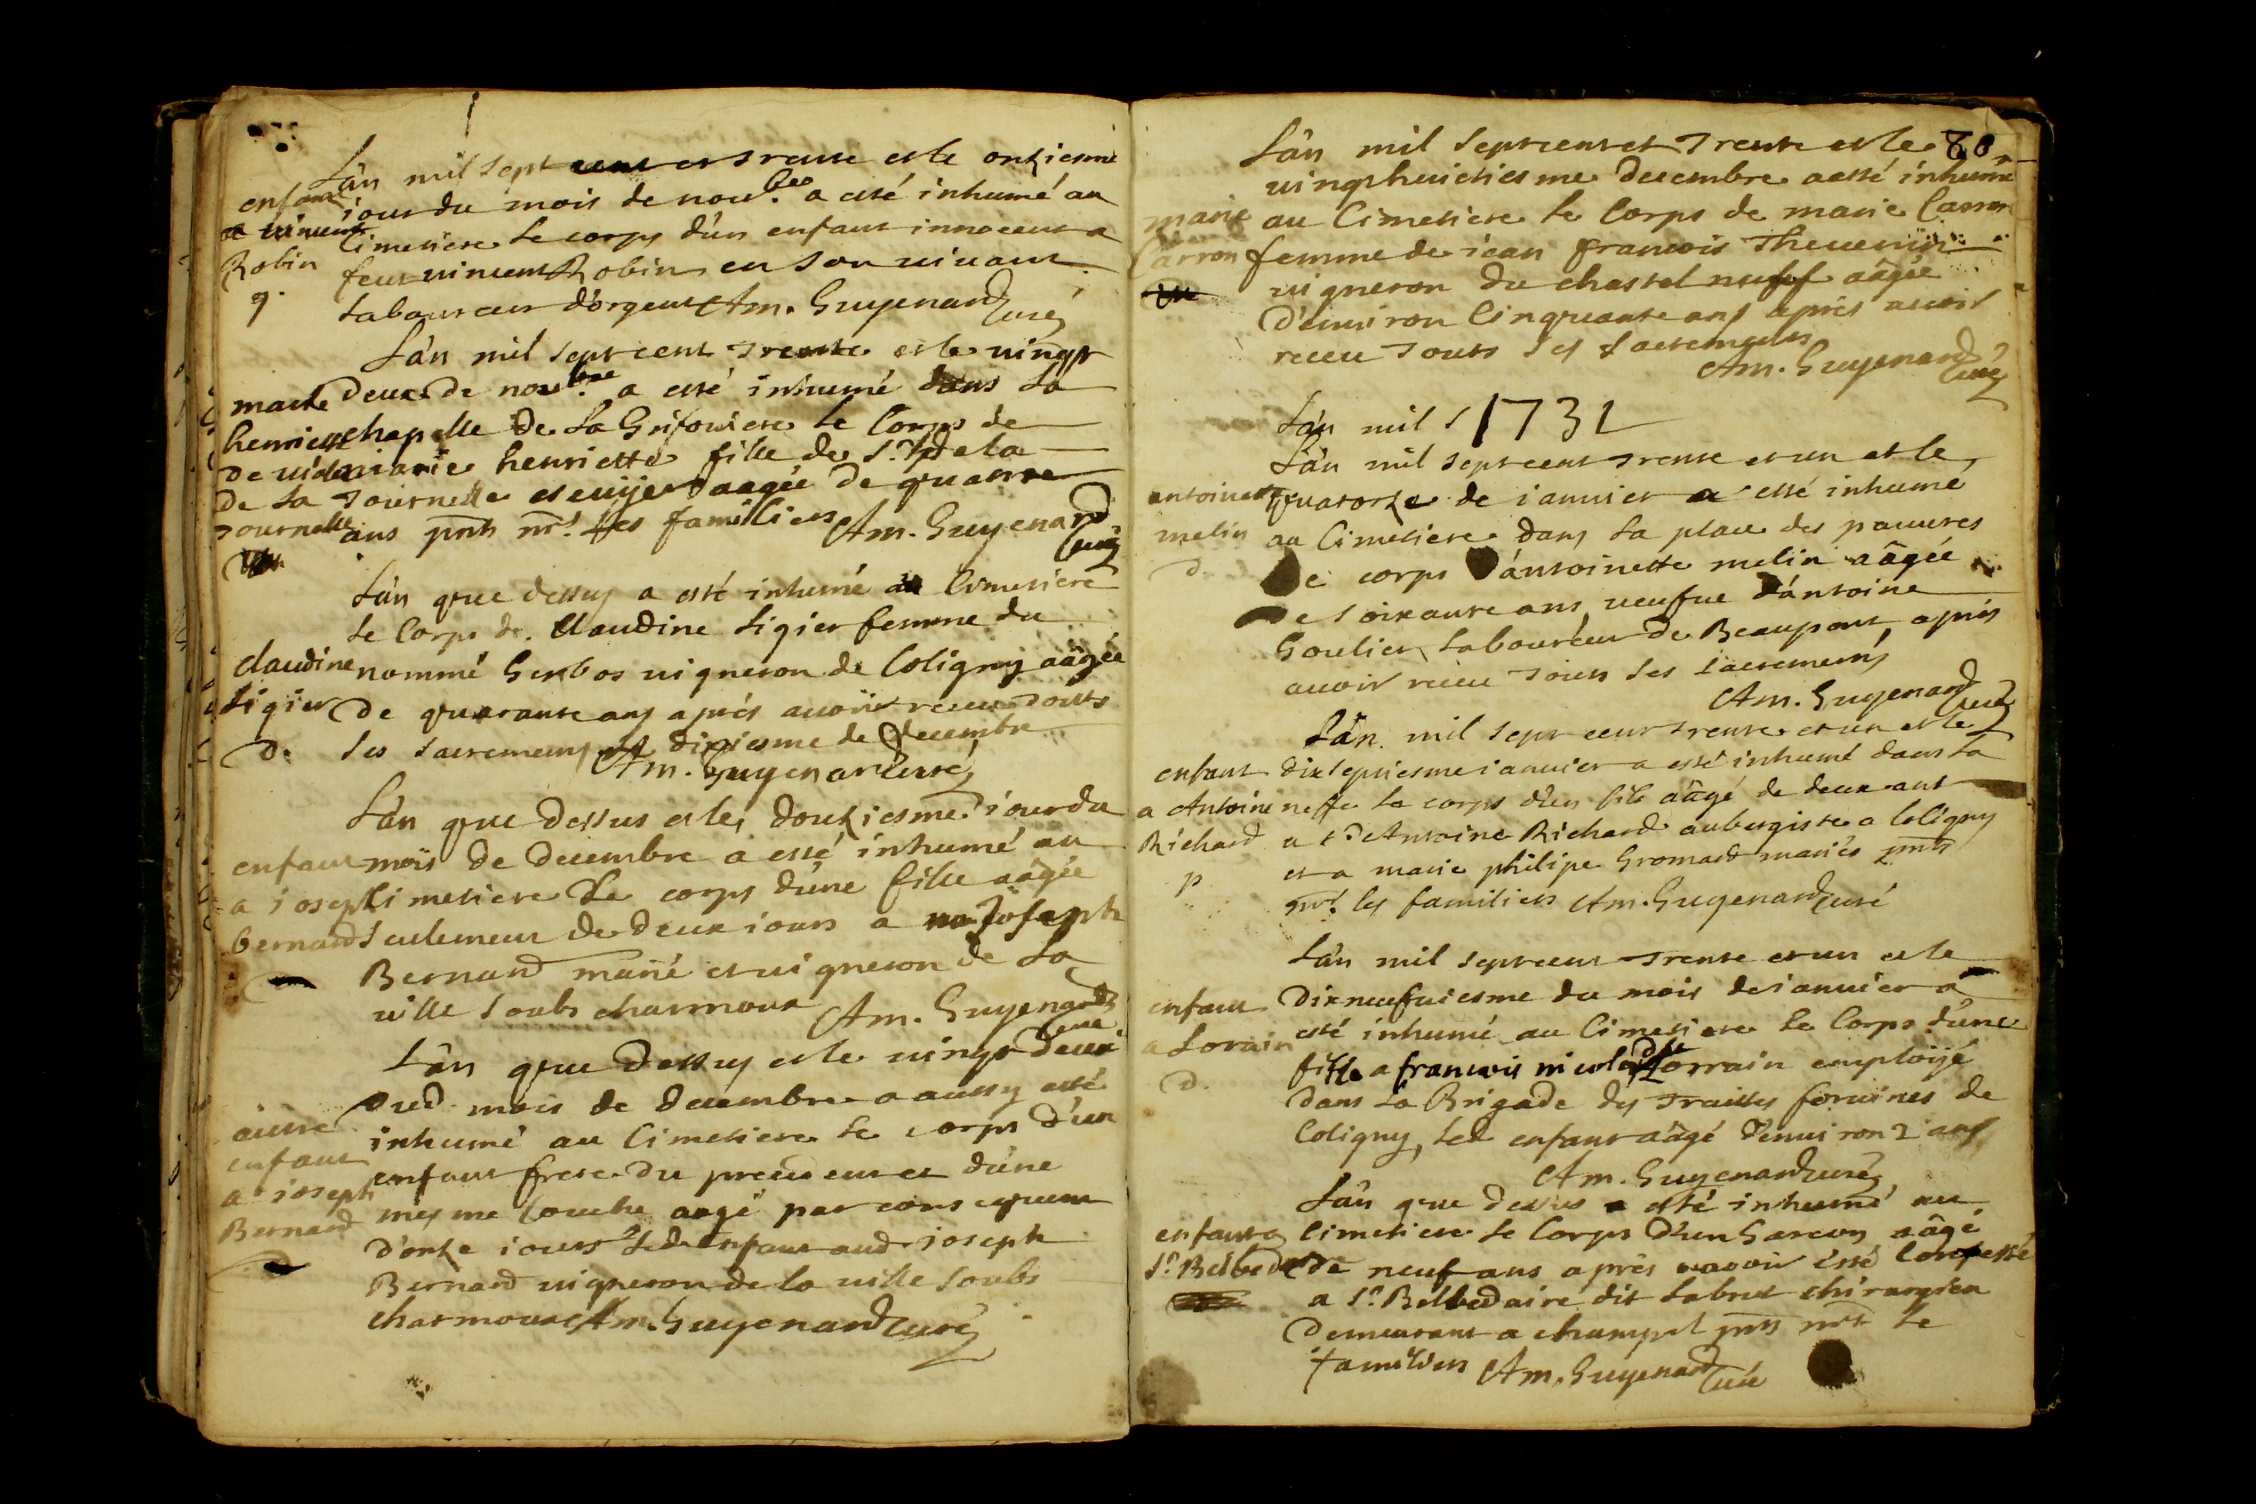 L'an mil sept cent et trente et le onziesme
enfant jour du mois de noubre a esté inhumé au
a vincent Cimetiere le corps d'un enfant innocent a
Robin feut vincent Robin en son vivant
9. Laboureur d'orgeut Am. Guyenard Curé
L'an mil sept cent trente et le vingt
marie deux de noubre a esté inhumé dans la
henriette chapelle de la Grifoniere le Corps de
de marie henriette fille de Sr de la
de la Tournelle escuijer aagée de quatre
Tournelle ans pnts mrs les familiers Am. Guyenard
Curé
L'an que dessus a esté inhumé au Cimetiere
le Corps de Claudine Ligier femme du
claudine nommé Gerbos vigneron de Coligny aâgée
Ligier de quarante ans aprés avoir receu touts
d. les sacremens le dixiesme de decembre
Am. Guyenard Curé
L'an que dessus et le douziesme jour du
enfant mois de decembre a esté inhumé au
a joseph Cimetiere le corps d'une fille aâgée
bernard seulement de deux jours a Joseph
Bernard marié et vigneron de la
ville soubs charmoux Am. Guyenard
Curé
L'an que dessus et le vingt deux
dud mois de decembre a aussy esté
autre inhumé au Cimetiere le corps d'un
enfant enfant frere du precedent et d'une
a joseph mesme couche aagé par consequent
Bernard d'onze jours led enfant aud joseph
Bernard vigneron de la ville soubs
charmoux Am. Guyenard Curé
80
L'an mil sept cent et trente et le
vingthuictiesme decembre a esté inhumé
marie au Cimetiere le Corps de marie Carron
Carron femme de jean francois Thevenin
vigneron du chastel neuf aâgée
d'environ Cinquante ans aprés avoir
receu touts les sacremens
Am. Guyenard Curé
L'an mil s 1731
L'an mil sept cent trente et un et le
antoinette quatorze de janvier a esté inhumé
melin au Cimetiere dans la place des pauvres
d. le corps d'antoinette melin aâgée
de soixante ans, veufue d'antoine
Goulier Laboureur de Beaupont, aprés
avoir receu touts les sacremens
Am. Guyenard Curé
L'an mil sept cent trente et un et le
enfant dixseptiesme janvier a esté inhumé dans la
a Antoine neffe le corps d'un fils aâgé de deux ans
Richard a sr Antoine Richard aubergiste a Coligny
p et a marie philipe Gromard mariés pnts
mrs les familiers Am. Guyenard Curé
L'an mil sept cent trente et un et le
enfant dixneufviesme du mois de janvier a
a Lorrain esté inhumé au Cimetiere le Corps d'une
d. fille a francois nicolas dit Lorrain emploijé
dans la Brigade des Traittes foraines de
Coligny, led enfant aâgé d'environ 2 ans
Am. Guyenard Curé
L'an que dessus a esté inhumé au
enfant a Cimetiere le Corps d'un Garcon aâgé
Sr Belbedaire de neuf ans aprés avoir esté Confessé
a Sr Belbedaire dit Labrut chirurgien
demeurant a champel pnts mrs le
familiers Am. Guyenard Curé